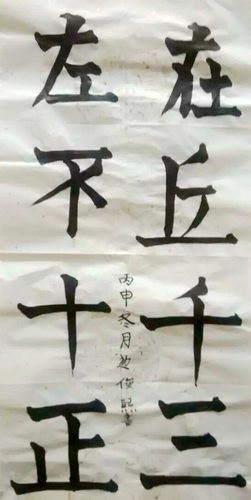 在丘千三
左不十正
丙申冬月 俊熙書